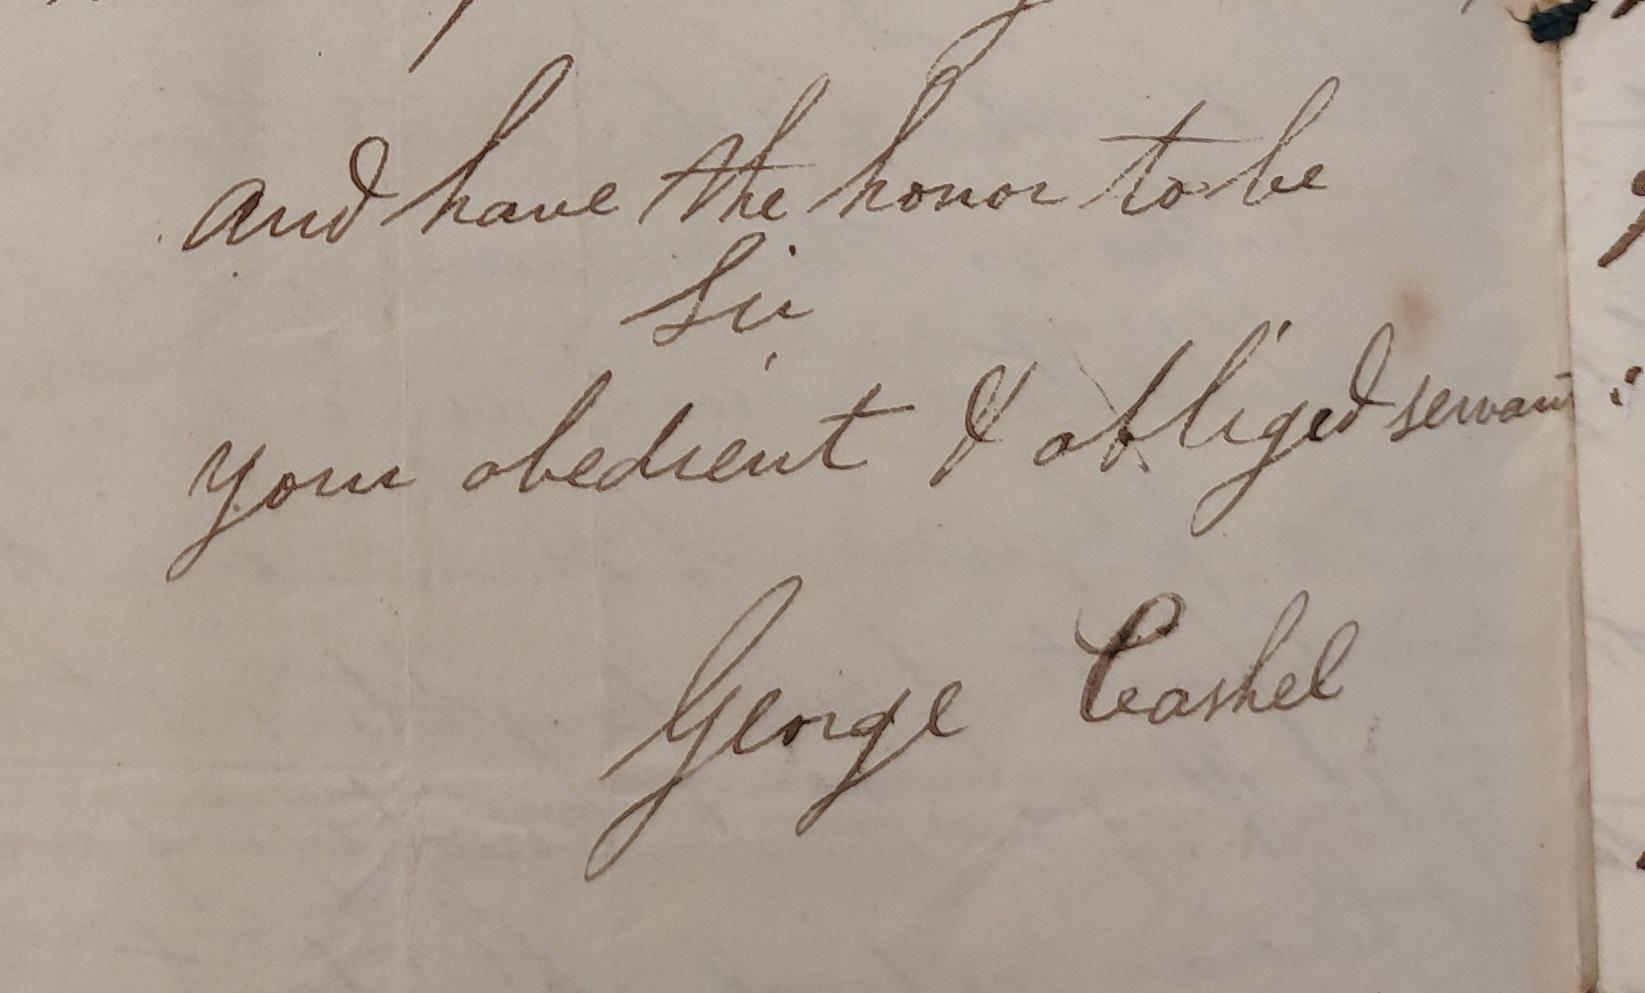 and have the honor to be
Sir
your obedient & obliged servant
George Cashel